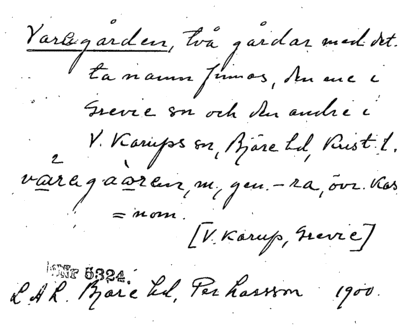 Varagården, två gårdar med det-
ta namn finnas, den ene i
Grevie sn och den andre i
V. Karups sn, Bjäre hd, Krist. l.
våragaåren, m., gen. -ra, övr. kas
= nom.
[V. Karup, Grevie]
Nr 5324.
L.A.L. Bjäre hd, Per Larsson 1900.